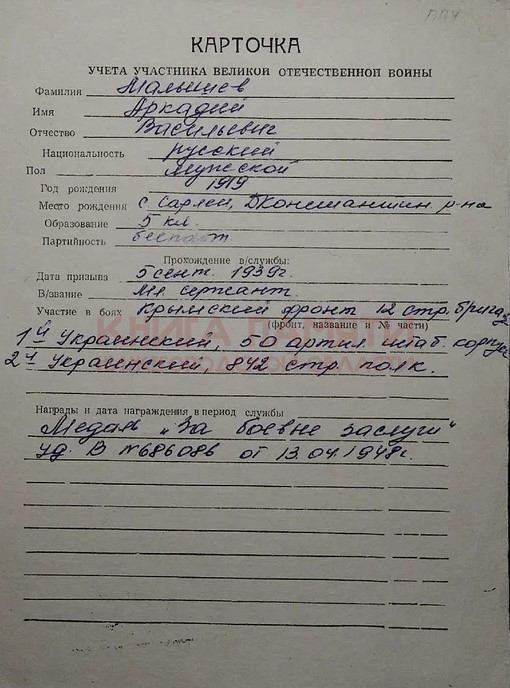 ППЧ
КАРТОЧКА
УЧЕТА УЧАСТНИКА ВЕЛИКОЙ ОТЕЧЕСТВЕННОЙ ВОЙНЫ
Фамилия Малышев
Имя Аркадий
Отчество Васильевич
Национальность русский
Пол Мужской
Год рождения 1919
Место рождения с. Сарлей, Дконстантин. р-на
Образование 5 кл.
Партийность беспарт.
Прохождение в/службы:
Дата призыва 5 сент. 1939г.
В/звание Мл. сержант.
Участие в боях Крымский фронт 12 стр. бригад
(фронт, название и № части)
КНИГА ПАМЯТИ
1й Украинский, 50 артил штаб. корпус
2й Украинский 842 стр. полк.
Награды и дата награждения в период службы
Медаль „За боевые заслуги"
уд. В №686086 от 13.04.1948г.